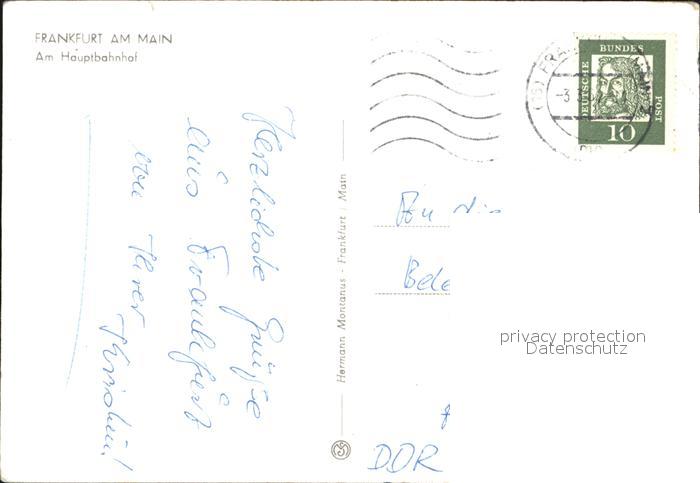 FRANKFURT AM MAIN
Am Hauptbahnhof
Herzlichste Grüße
aus Frankfurt
von Ihrer
Hermann Montanus - Frankfurt / Main
DEUTSCHE BUNDES POST
10
DDR
privacy protection
Datenschutz